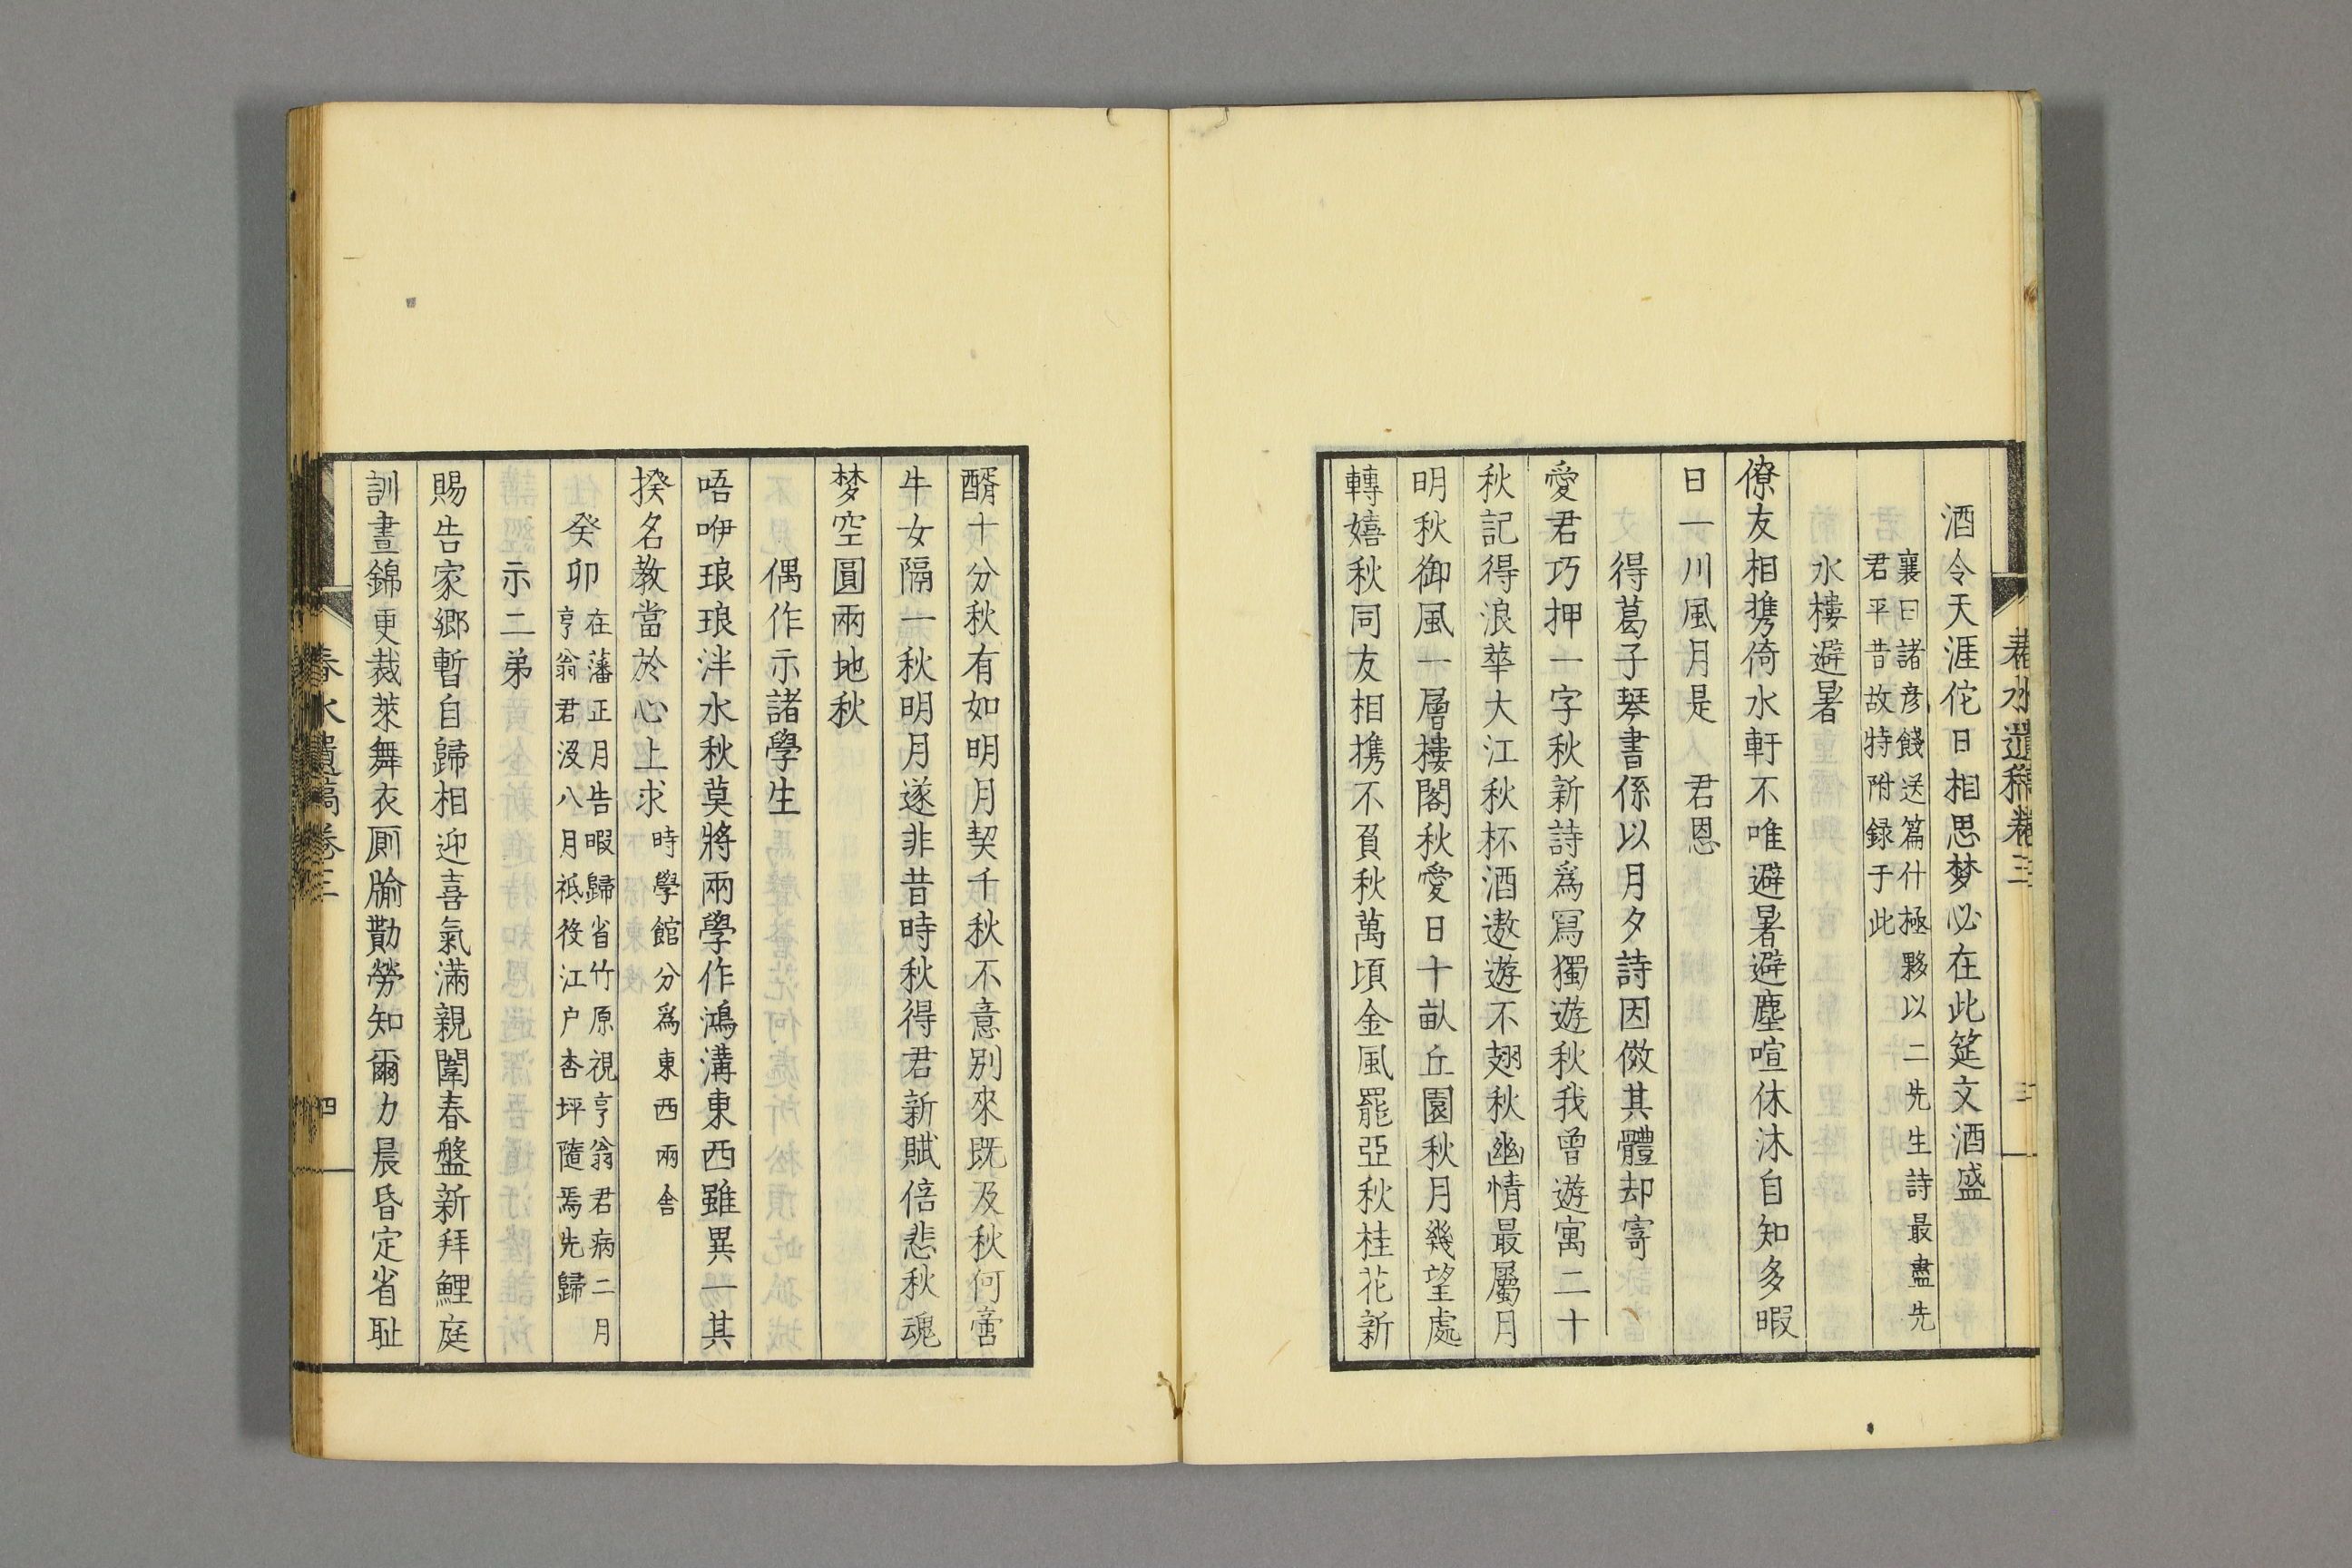 春水遺稿卷三
三
酒令天涯佗日相思梦必在此筵文酒盛
襄曰諸彦餞送篇什極夥以二先生詩最盡先
君平昔故特附録于此
水樓避暑
僚友相携倚水軒不唯避暑避塵喧休沐自知多暇
日一川風月是　君恩
得葛子琴書係以月夕詩因傚其體却寄
愛君巧押一字秋新詩爲寫獨遊秋我曾遊寓二十
秋記得浪華大江秋杯酒遨遊不翅秋幽情最屬月
明秋御風一層樓閣秋愛日十畝丘園秋月幾望處
轉嬉秋同友相携不負秋萬頃金風罷亞秋桂花新
醑十分秋有如明月契千秋不意別來既及秋何啻
牛女隔一秋明月遂非昔時秋得君新賦倍悲秋魂
梦空圓兩地秋
偶作示諸學生
唔咿琅琅泮水秋莫將兩學作鴻溝東西雖異一其
揆名教當於心上求時學館分爲東西兩舎
癸卯在藩正月告暇歸省竹原視亨翁君病二月
亨翁君沒八月祗役江户杏坪隨焉先歸
示二弟
賜告家鄉暫自歸相迎喜氣滿親闈春盤新拜鯉庭
訓晝錦更裁萊舞衣厠牏勩勞知爾力晨昏定省耻
春水遺稿卷三
四